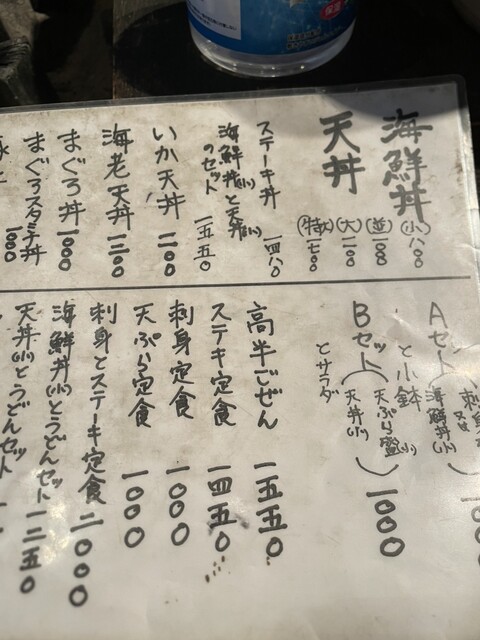 海鮮丼
天丼
(小)八〇〇
(並)一〇〇〇
(大)一二〇〇
(特大)一七〇〇
ステーキ丼 一四八〇
海鮮丼(小)と天丼(小)
のセット 一五五〇
いか天丼 一二〇〇
海老天丼 一二〇〇
まぐろ丼 一〇〇〇
まぐろスタミナ丼 一〇〇〇
Aセット
海鮮丼(小)
と小鉢
Bセット
天ぷら盛(小)
天丼(小)
一〇〇〇
とサラダ
高半ごぜん 一五五〇
ステキ定食 一四五〇
刺身定食 一〇〇〇
天ぷら定食 一〇〇〇
刺身とステーキ定食 二〇〇〇
海鮮丼(小)とうどんセット 一二五〇
天丼(小)とうどんセット